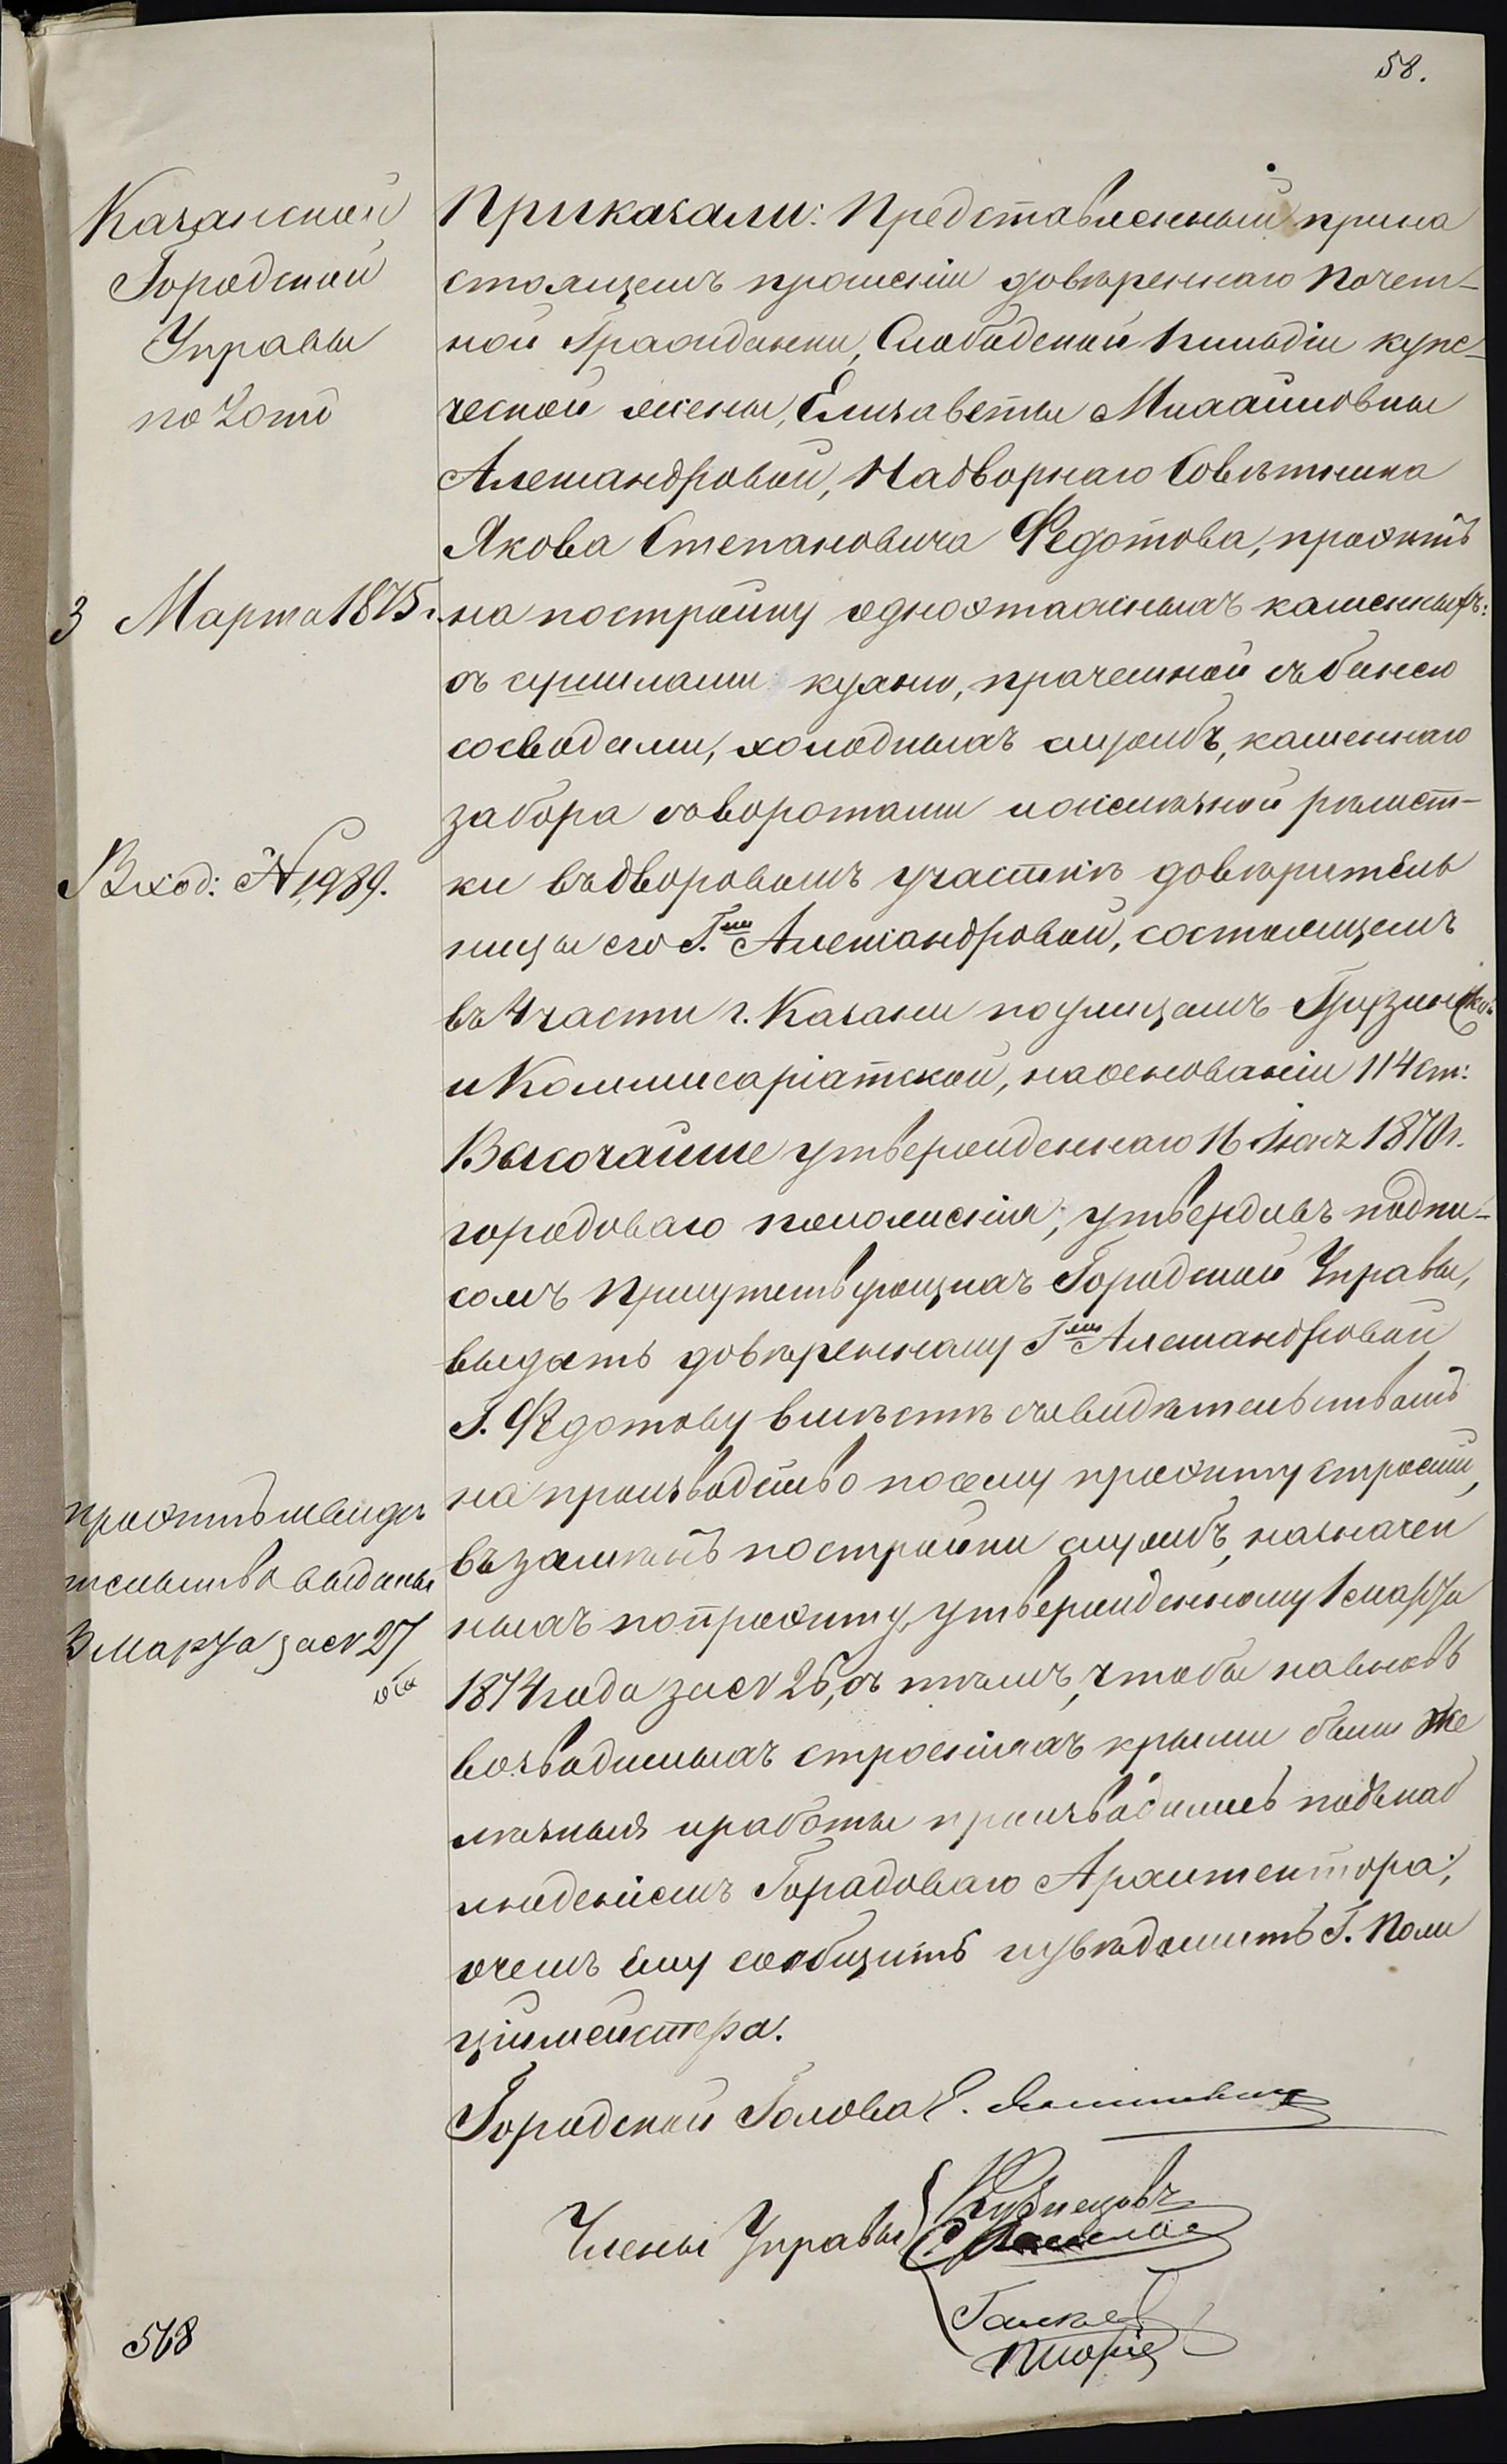 58.
Казанской
Городской
Управы
по 2 отд
3 Марта 1875 г.
Вход: № 1,989.
Проэктъ и свидѣ
тельство выданы
3 Марта за № 27
Приказали: Представленный при на
стоящемъ прошеніи довѣреннаго Почет-
ной Гражданки, Слободской 1 гильдіи купе-
ческой жены, Елизаветы Михайловны
Александровой, Надворнаго Совѣтника
Якова Степановича Федотова, проэктъ
на постройку одноэтажныхъ каменныхъ:
съ службами кухни, прачешной съ банею
со сводами, холодныхъ службъ, каменнаго
забора съ воротами и желѣзной рѣшет-
ки въ дворовомъ участкѣ довѣритель
ницы его Г.жи Александровой, состоящемъ
въ 4 части г. Казани по улицамъ Грузинской
и Коммисаріатской, на основаніи 114 ст:
Высочайше утвержденнаго 16 Іюня 1870 г.
городоваго положенія, утвердивъ подпи-
сомъ Присутствующихъ Городской Управы,
выдать довѣренному Г.жи Александровой
Г. Федотову вмѣстѣ съ свидѣтельствомъ
на производство по сему проэкту строеній,
въ замѣнъ постройки службъ, назначен
ныхъ по проэкту, утвержденному 1 марта
1874 года за № 25, съ тѣмъ, чтобы на вновь
возводимыхъ строеніяхъ крыши были же
лѣзныя и работы производились подъ наб
люденіемъ Городоваго Архитектора;
о чемъ ему сообщить и увѣдомить Г. Поли
ціймейстера.
Городской Голова Е.
Члены Управы
Кузнецовъ
568